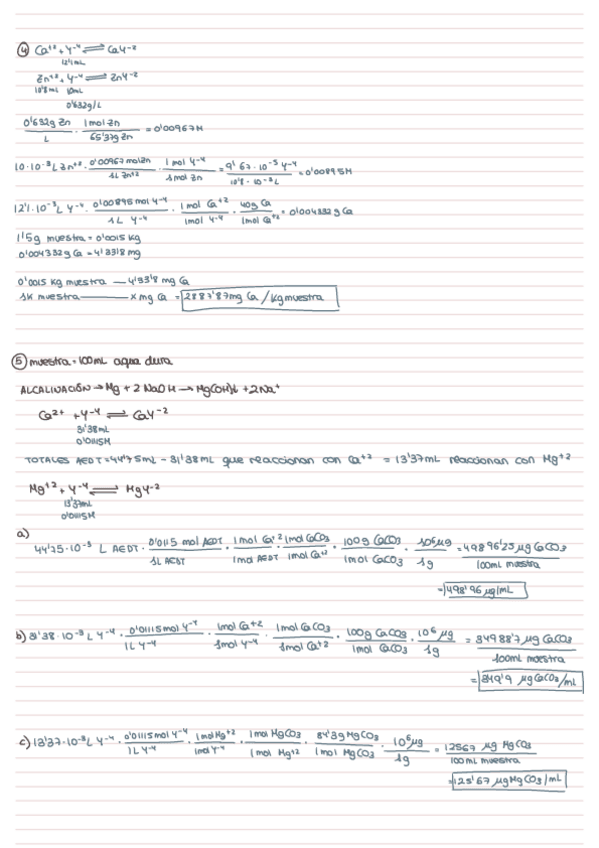 ④ Ca⁺² + Y⁻⁴ ⇌ CaY⁻²
12'1mL
Zn⁺² + Y⁻⁴ ⇌ ZnY⁻²
10'8mL 10mL
0'632g/L
0'632g Zn / L · 1mol Zn / 65'37g Zn = 0'00967M
10·10⁻³L Zn⁺² · 0'00967 mol Zn / 1L Zn⁺² · 1 mol Y⁻⁴ / 1mol Zn = 9'67·10⁻⁵ Y⁻⁴ / 10'8·10⁻³L = 0'00895M
12'1·10⁻³L Y⁻⁴ · 0'00895 mol Y⁻⁴ / 1L Y⁻⁴ · 1mol Ca⁺² / 1mol Y⁻⁴ · 40g Ca / 1mol Ca⁺² = 0'004332g Ca
1'5g muestra = 0'0015 Kg
0'004332g Ca = 4'3318 mg
0'0015 Kg muestra — 4'3318 mg Ca
1K muestra ——— x mg Ca = 2887'87mg Ca/Kg muestra
⑤ muestra = 100mL agua dura
ALCALINACIÓN → Mg + 2 NaOH → Mg(OH)₂ + 2Na⁺
Ca²⁺ + Y⁻⁴ ⇌ CaY⁻²
31'38mL
0'0115M
TOTALES AEDT = 44'75mL − 31'38mL que reaccionan con Ca⁺² = 13'37mL reaccionan con Mg⁺²
Mg⁺² + Y⁻⁴ ⇌ MgY⁻²
13'37mL
0'0115M
a)
44'75·10⁻³ L AEDT · 0'0115 mol AEDT / 1L AEDT · 1mol Ca⁺² / 1mol AEDT · 1mol CaCO₃ / 1mol Ca⁺² · 100g CaCO₃ / 1mol CaCO₃ · 10⁶µg / 1g = 49896'25 µg CaCO₃ / 100mL muestra
= 498'96 µg/mL
b) 31'38·10⁻³L Y⁻⁴ · 0'01115mol Y⁻⁴ / 1L Y⁻⁴ · 1mol Ca⁺² / 1mol Y⁻⁴ · 1mol CaCO₃ / 1mol Ca⁺² · 100g CaCO₃ / 1mol CaCO₃ · 10⁶ µg / 1g = 34988'7 µg CaCO₃ / 100mL muestra
= 349'9 µg CaCO₃/mL
c) 13'37·10⁻³L Y⁻⁴ · 0'01115mol Y⁻⁴ / 1L Y⁻⁴ · 1mol Mg⁺² / 1mol Y⁻⁴ · 1mol MgCO₃ / 1mol Mg⁺² · 84'3g MgCO₃ / 1mol MgCO₃ · 10⁶µg / 1g = 12567 µg MgCO₃ / 100mL muestra
= 125'67 µg MgCO₃/mL